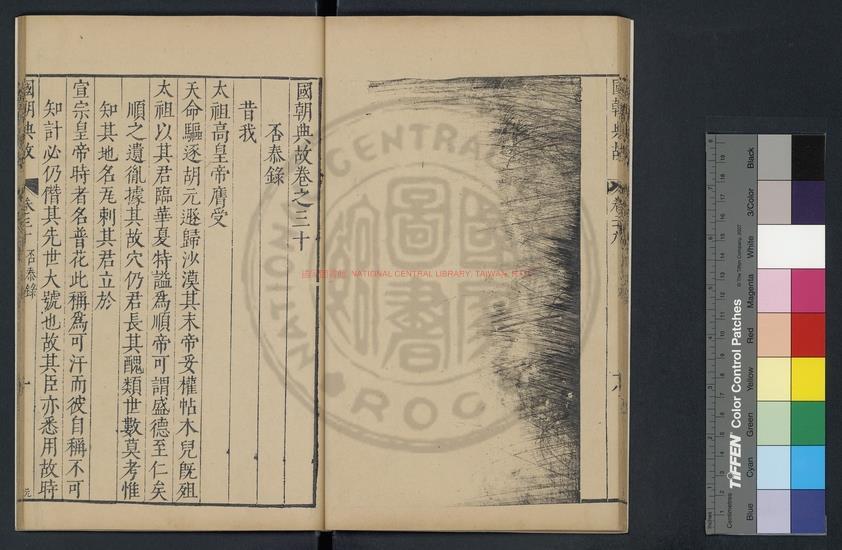 國朝典故卷之三十
否泰錄
昔我
太祖高皇帝膺受
天命驅逐胡元遯歸沙漠其末帝妥權帖木兒旣殂
太祖以其君臨華夏特謚爲順帝可謂盛德至仁矣
順之遺胤據其故穴仍君長其醜類世數莫考惟
知其地名瓦剌其君立於
宣宗皇帝時者名普花此稱爲可汗而彼自稱不可
知計必仍僭其先世大號也故其臣亦悉用故時
國朝典故
卷三十
否泰錄
一
國朝典故
國家圖書館 NATIONAL CENTRAL LIBRARY, TAIWAN, R.O.C
NATIONAL CENTRAL
ROC
圖
書
TIFFEN Color Control Patches
© The Tiffen Company, 2007
Centimetres
Inches
Blue
Cyan
Green
Yellow
Red
Magenta
White
3/Color
Black